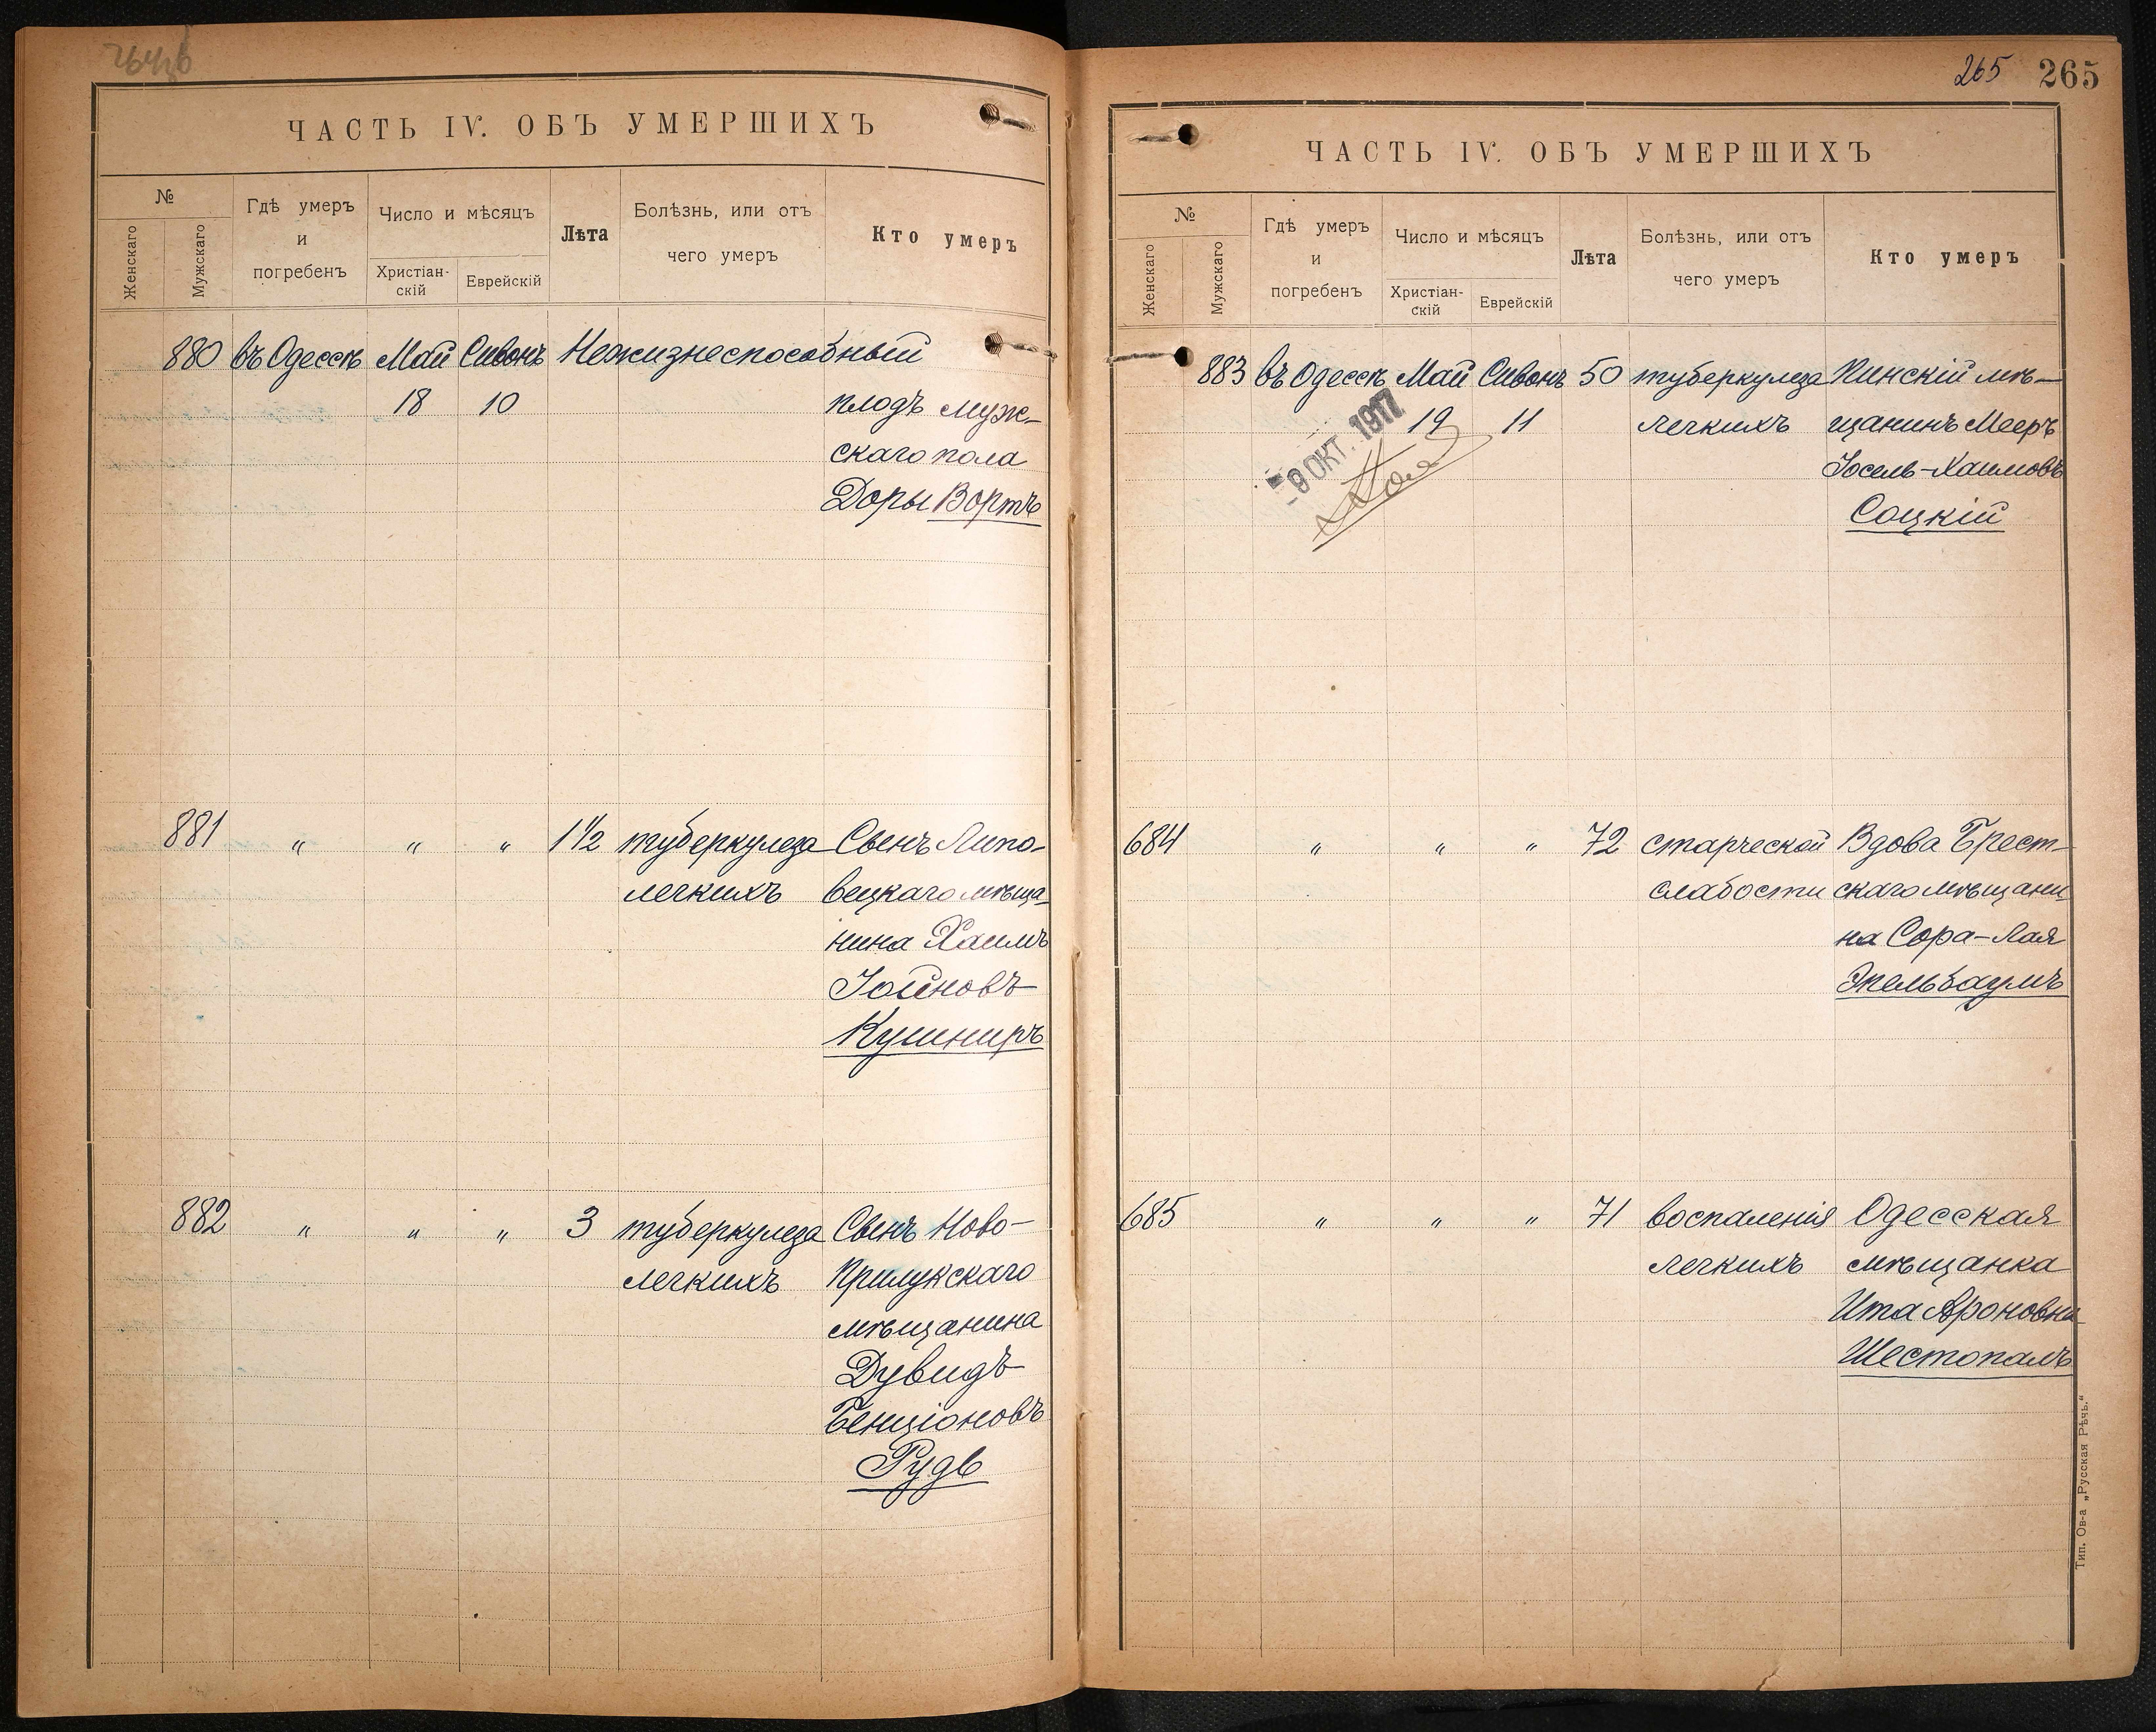 ЧАСТЬ IV. ОБЪ УМЕРШИХЪ
№
Женскаго
Мужскаго
Гдѣ умеръ
и
погребенъ
Число и мѣсяцъ
Христіан-
скій
Еврейскій
Лѣта
Болѣзнь, или отъ
чего умеръ
Кто умеръ
880 въ Одессѣ Май Сивонъ Нежизнеспособный
18 10 плодъ муж-
скаго пола
Доры Вортъ
881 " " " 1½ туберкулеза Сынъ Липо-
легкихъ вецкаго мѣща-
нина Хаимъ
Іойновъ
Кушниръ
882 " " " 3 туберкулеза Сынъ Ново-
легкихъ Прилукскаго
мѣщанина
Дувидъ
Бенціоновъ
Рудь
265 265
ЧАСТЬ IV. ОБЪ УМЕРШИХЪ
№
Женскаго
Мужскаго
Гдѣ умеръ
и
погребенъ
Число и мѣсяцъ
Христіан-
скій
Еврейскій
Лѣта
Болѣзнь, или отъ
чего умеръ
Кто умеръ
883 въ Одессѣ Май Сивонъ 50 туберкулеза Пинскій мѣ-
19 11 легкихъ щанинъ Мееръ
Іосель-Хаимовъ
Соцкій
-9 ОКТ. 1917
684 " " " 72 старческой Вдова Брест-
слабости скаго мѣщани-
на Сора-Лая
Эпельбаумъ
685 " " " 71 воспаленія Одесская
легкихъ мѣщанка
Ита Ароновна
Шестопалъ
Тип. Ов-а „Русская Рѣчь."